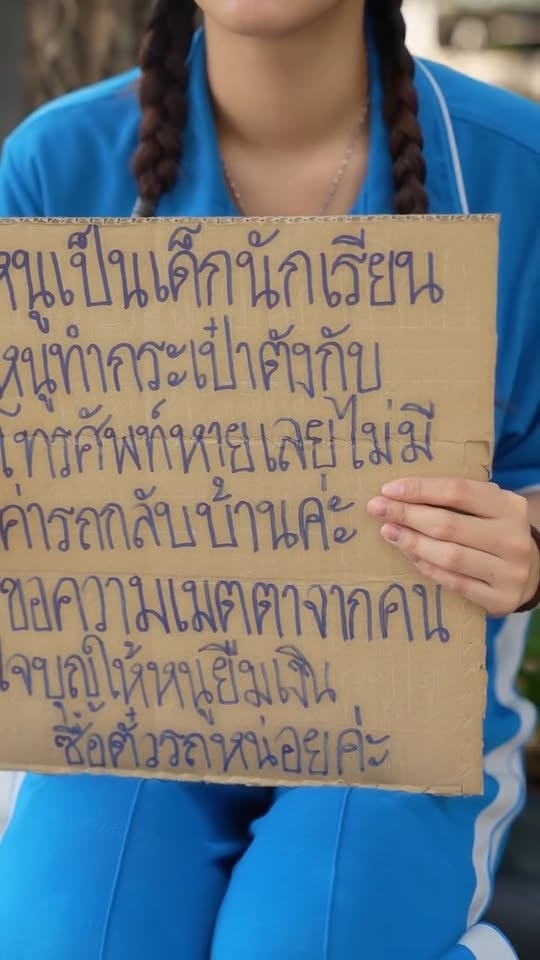 หนูเป็นเด็กนักเรียน
หนูทำกระเป๋าตังกับ
โทรศัพท์หายเลยไม่มี
ค่ารถกลับบ้านค่ะ
ขอความเมตตาจากคน
ใจบุญให้หนูยืมเงิน
ซื้อตั๋วรถหน่อยค่ะ